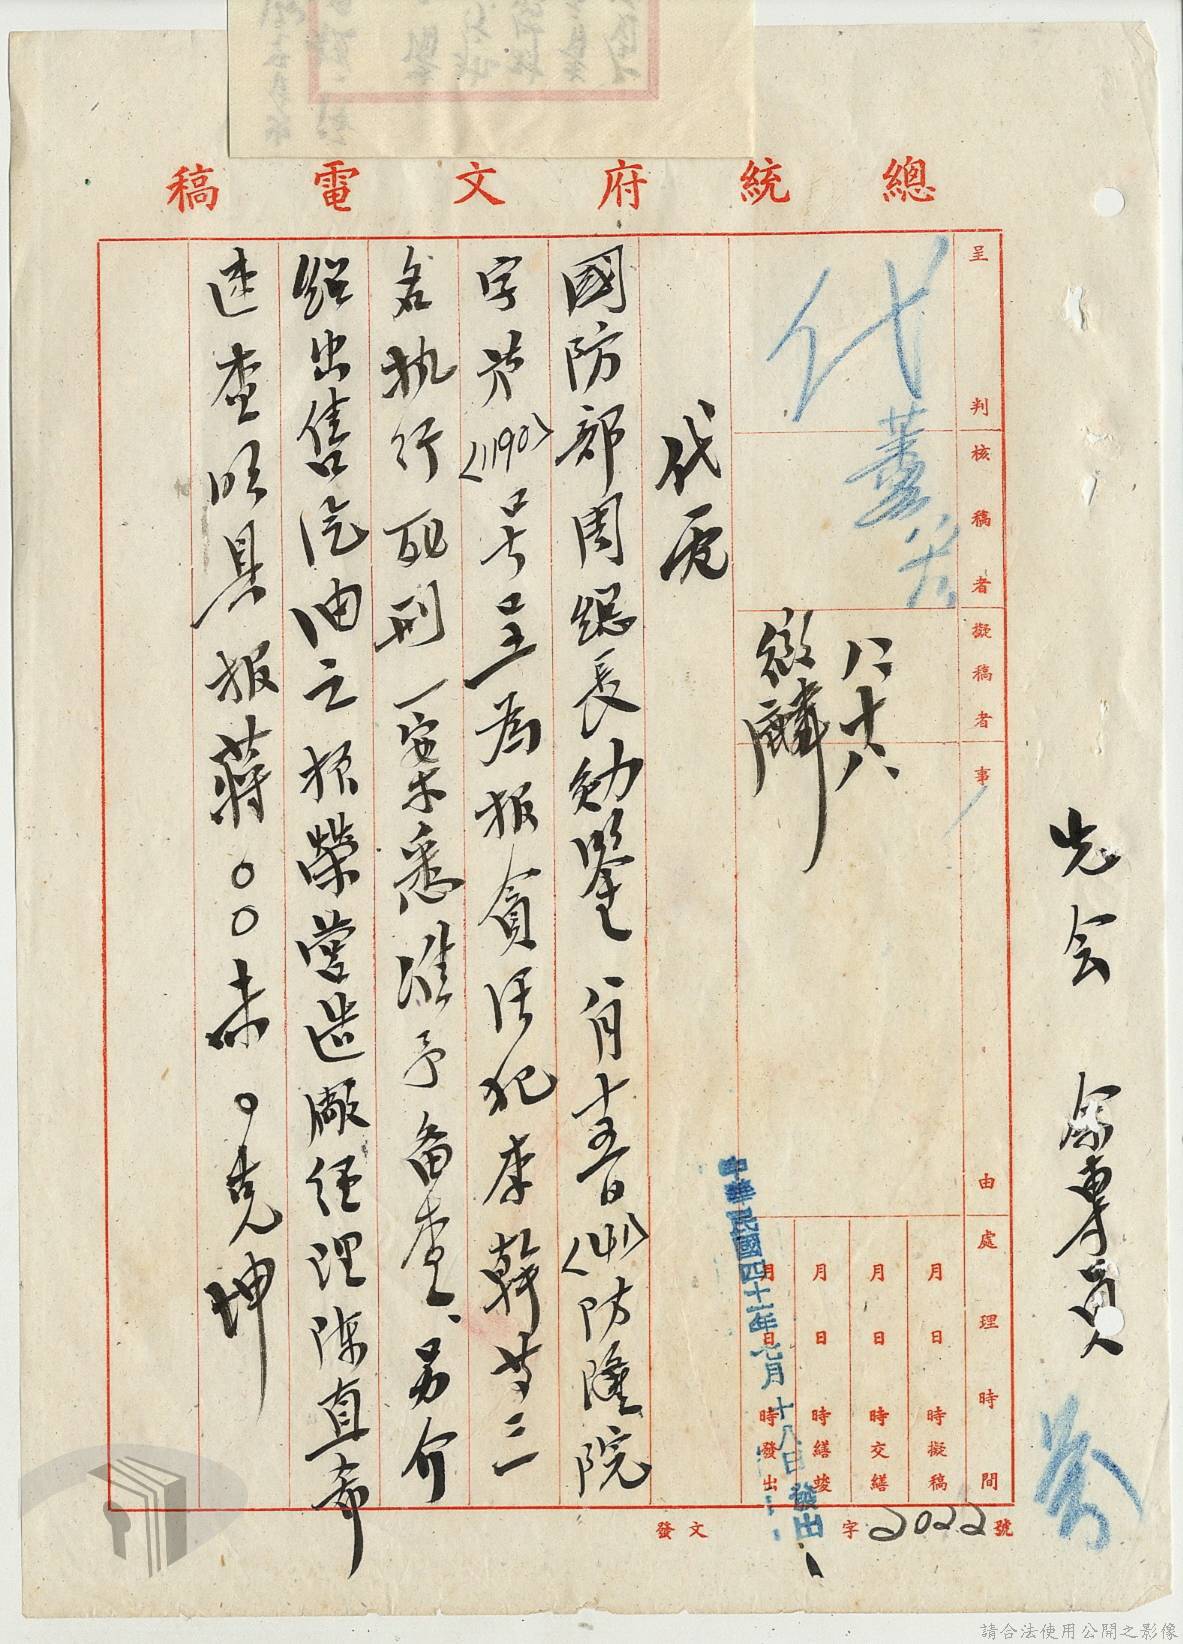 總統府文電稿
先会 余專員
呈判
代
核稿者
擬稿者
八、十八
事由
處理時間
月 日 時擬稿
月 日 時交繕
月 日 時繕竣
月 日 時發出
中華民國四十一年七月十八日發出
發文 字 2022 號
代電
國防部周總長勛鑒 八月十五日(41)防隆院
字第(1190)号呈為報貪污犯李幹等三
名执行死刑一案悉准予备查、另介
紹出售汽油之振榮营造廠經理陳直奇
速查明具报蔣○○未○克坤
請合法使用公開之影像